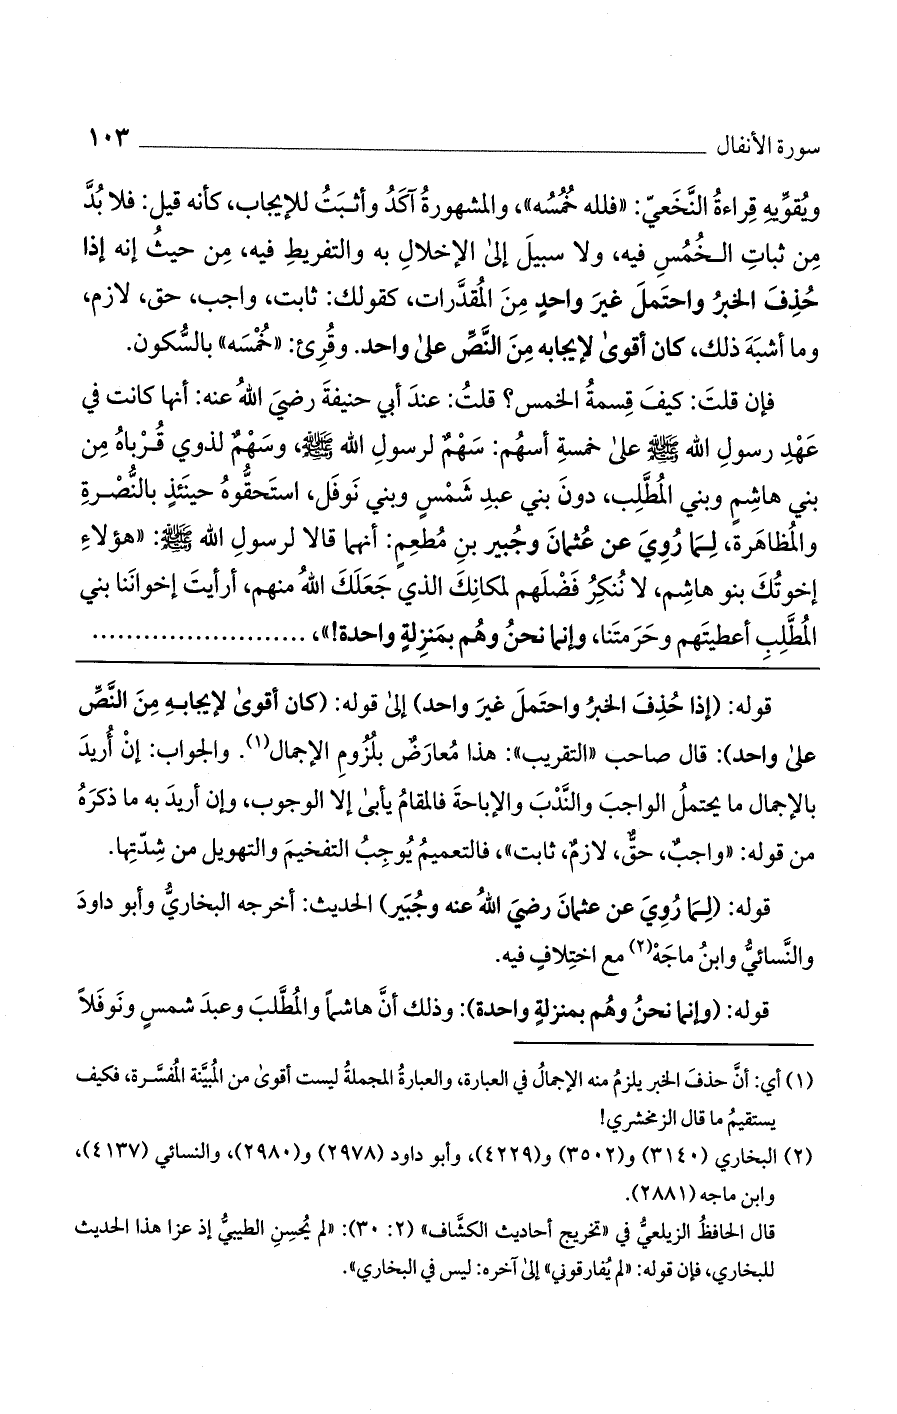 سورة الأنفال ١٠٣
ويُقوِّيهِ قِراءةُ النَّخَعيّ: «فلله خُمُسُه»، والمشهورةُ آكَدُ وأثبَتُ للإيجاب، كأنه قيل: فلا بُدَّ
مِن ثباتِ الـخُمُسِ فيه، ولا سبيلَ إلىٰ الإخلالِ به والتفريطِ فيه، مِن حيثُ إنه إذا
حُذِفَ الخبرُ واحتملَ غيرَ واحدٍ مِنَ المُقدَّرات، كقولك: ثابت، واجب، حق، لازم،
وما أشبَهَ ذلك، كان أقوىٰ لإيجابه مِنَ النَّصِّ علىٰ واحد. وقُرِئ: «خُمْسَه» بالسُّكون.
فإن قلتَ: كيفَ قِسمةُ الخمس؟ قلتُ: عندَ أبي حنيفةَ رضيَ اللهُ عنه: أنها كانت في
عَهْدِ رسولِ الله ﷺ علىٰ خمسةِ أسهُم: سَهْمٌ لرسولِ الله ﷺ، وسَهْمٌ لذوي قُرْباهُ مِن
بني هاشِمٍ وبني المُطَّلِب، دونَ بني عبدِ شَمْسٍ وبني نَوفَل، استَحقُّوهُ حينَئذٍ بالنُّصْرةِ
والمُظاهَرة، لِـمَا رُوِيَ عن عُثمانَ وجُبيرِ بنِ مُطعِمٍ: أنهما قالا لرسولِ الله ﷺ: «هؤلاءِ
إخوتُكَ بنو هاشِم، لا نُنكِرُ فَضْلَهم لمكانِكَ الذي جَعَلَكَ اللهُ منهم، أرأيتَ إخوانَنا بني
المُطَّلِبِ أعطيتَهم وحَرَمتَنا، وإنما نحنُ وهُم بمَنزِلةٍ واحدة!»، .........................
قوله: (إذا حُذِفَ الخبرُ واحتَملَ غيرَ واحد) إلىٰ قوله: (كان أقوىٰ لإيجابـه مِنَ النَّصِّ
علىٰ واحد): قال صاحب «التقريب»: هذا مُعارَضٌ بلُزومِ الإجمال(١). والجواب: إنْ أُريدَ
بالإجمال ما يحتملُ الواجبَ والنَّدْبَ والإباحةَ فالمقامُ يأبىٰ إلا الوجوب، وإن أريدَ به ما ذكرَهُ
من قوله: «واجبٌ، حقٌّ، لازمٌ، ثابت»، فالتعميمُ يُوجِبُ التفخيمَ والتهويل من شِدّتِها.
قوله: (لِـمَا رُوِيَ عن عثمانَ رضيَ اللهُ عنه وجُبَير) الحديث: أخرجه البخاريُّ وأبو داودَ
والنَّسائيُّ وابنُ ماجَهْ(٢) مع اختِلافٍ فيه.
قوله: (وإنما نحنُ وهُم بمنزلةٍ واحدة): وذلك أنَّ هاشماً والمُطَّلبَ وعبدَ شمسٍ ونَوفَلاً
(١) أي: أنَّ حذفَ الخبرِ يلزمُ منه الإجمالُ في العبارة، والعبارةُ المجملةُ ليست أقوىٰ من المُبيَّنة المُفسَّرة، فكيف
يستقيمُ ما قال الزمخشري!
(٢) البخاري (٣١٤٠) و(٣٥٠٢) و(٤٢٢٩)، وأبو داود (٢٩٧٨) و(٢٩٨٠)، والنسائي (٤١٣٧)،
وابن ماجه (٢٨٨١).
قال الحافظُ الزيلعيُّ في «تخريج أحاديث الكشَّاف» (٢: ٣٠): «لم يُحسِنِ الطيبيُّ إذ عزا هذا الحديث
للبخاري، فإن قوله: «لم يُفارقوني» إلىٰ آخره: ليس في البخاري».